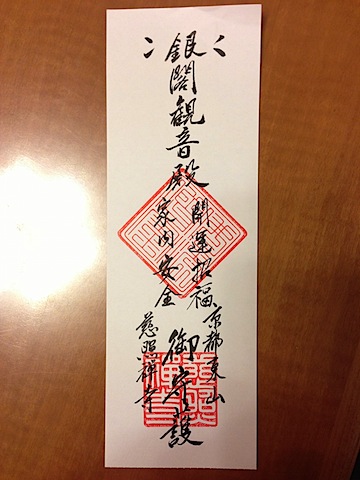 銀閣観音殿
開運招福
家内安全
御守護
京都東山
慈照禅寺